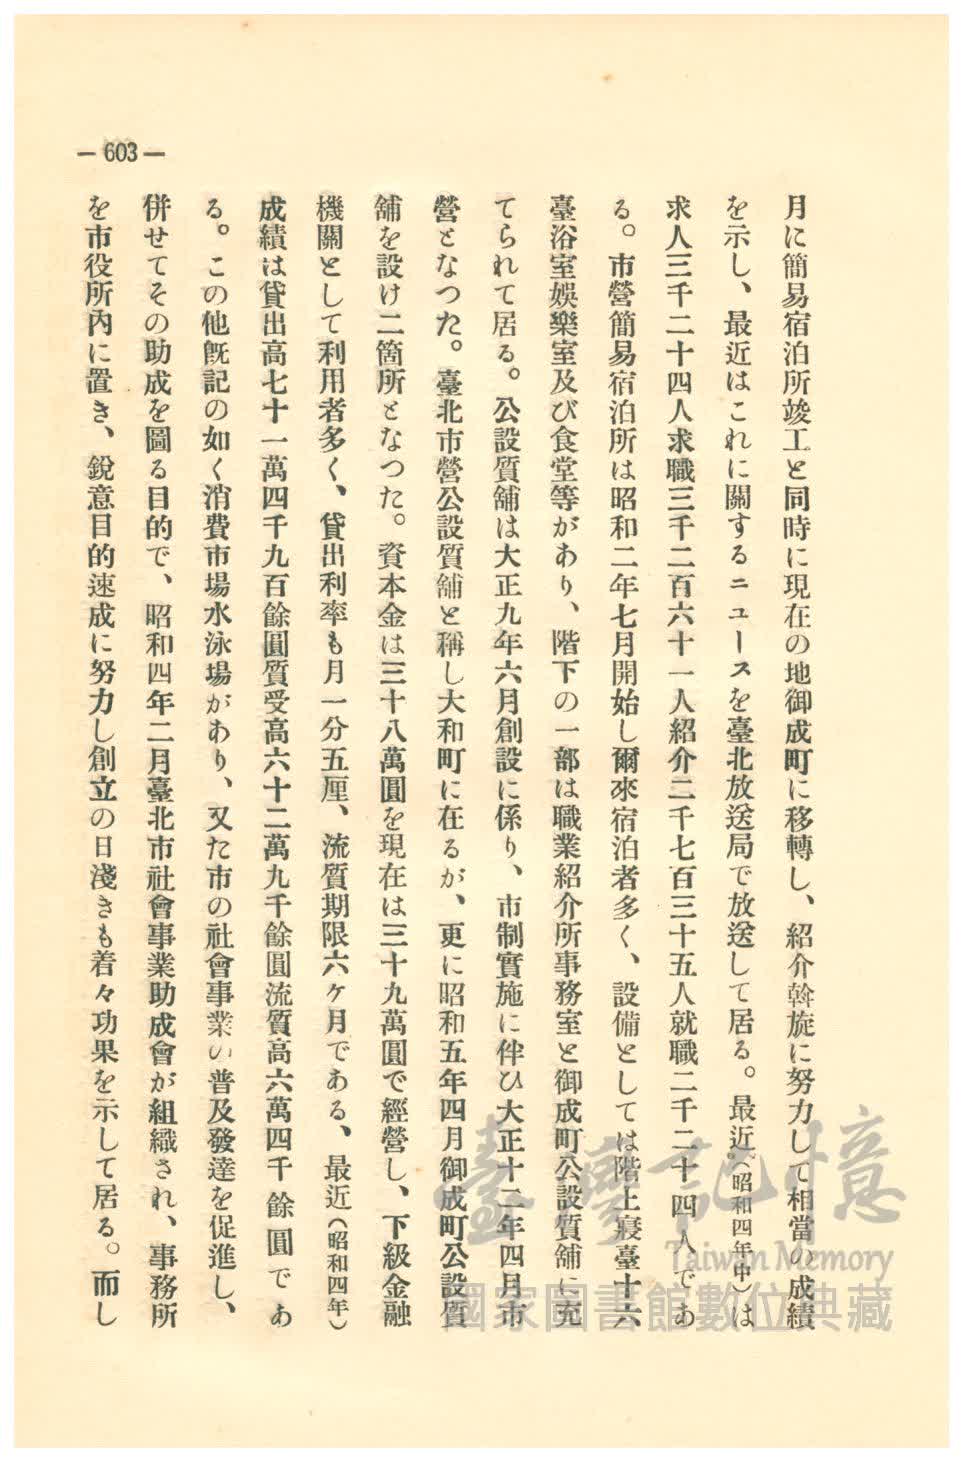 — 603 —
月に簡易宿泊所竣工と同時に現在の地御成町に移轉し、紹介斡旋に努力して相當の成績
を示し、最近はこれに關するニュースを臺北放送局で放送して居る。最近（昭和四年中）は
求人三千二十四人求職三千二百六十一人紹介二千七百三十五人就職二千二十四人であ
る。市營簡易宿泊所は昭和二年七月開始し爾來宿泊者多く、設備としては階上寢臺十六
臺浴室娛樂室及び食堂等があり、階下の一部は職業紹介所事務室と御成町公設質舖に充
てられて居る。公設質舖は大正九年六月創設に係り、市制實施に伴ひ大正十二年四月市
營となつた。臺北市營公設質舖と稱し大和町に在るが、更に昭和五年四月御成町公設質
舖を設け二箇所となつた。資本金は三十八萬圓を現在は三十九萬圓で經營し、下級金融
機關として利用者多く、貸出利率も月一分五厘、流質期限六ケ月である、最近（昭和四年）
成績は貸出高七十一萬四千九百餘圓質受高六十二萬九千餘圓流質高六萬四千餘圓であ
る。この他旣記の如く消費市場水泳場があり、又た市の社會事業の普及發達を促進し、
併せてその助成を圖る目的で、昭和四年二月臺北市社會事業助成會が組織され、事務所
を市役所內に置き、銳意目的速成に努力し創立の日淺きも着々功果を示して居る。而し
臺灣記憶
Taiwan Memory
國家圖書館數位典藏